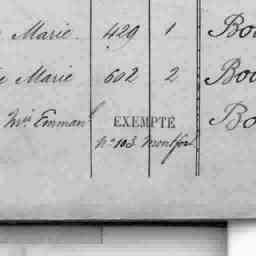 Marie 429 1 Bo
Marie 602 2 Bo
Emman EXEMPTÉ Bo
N° 103 Montfor